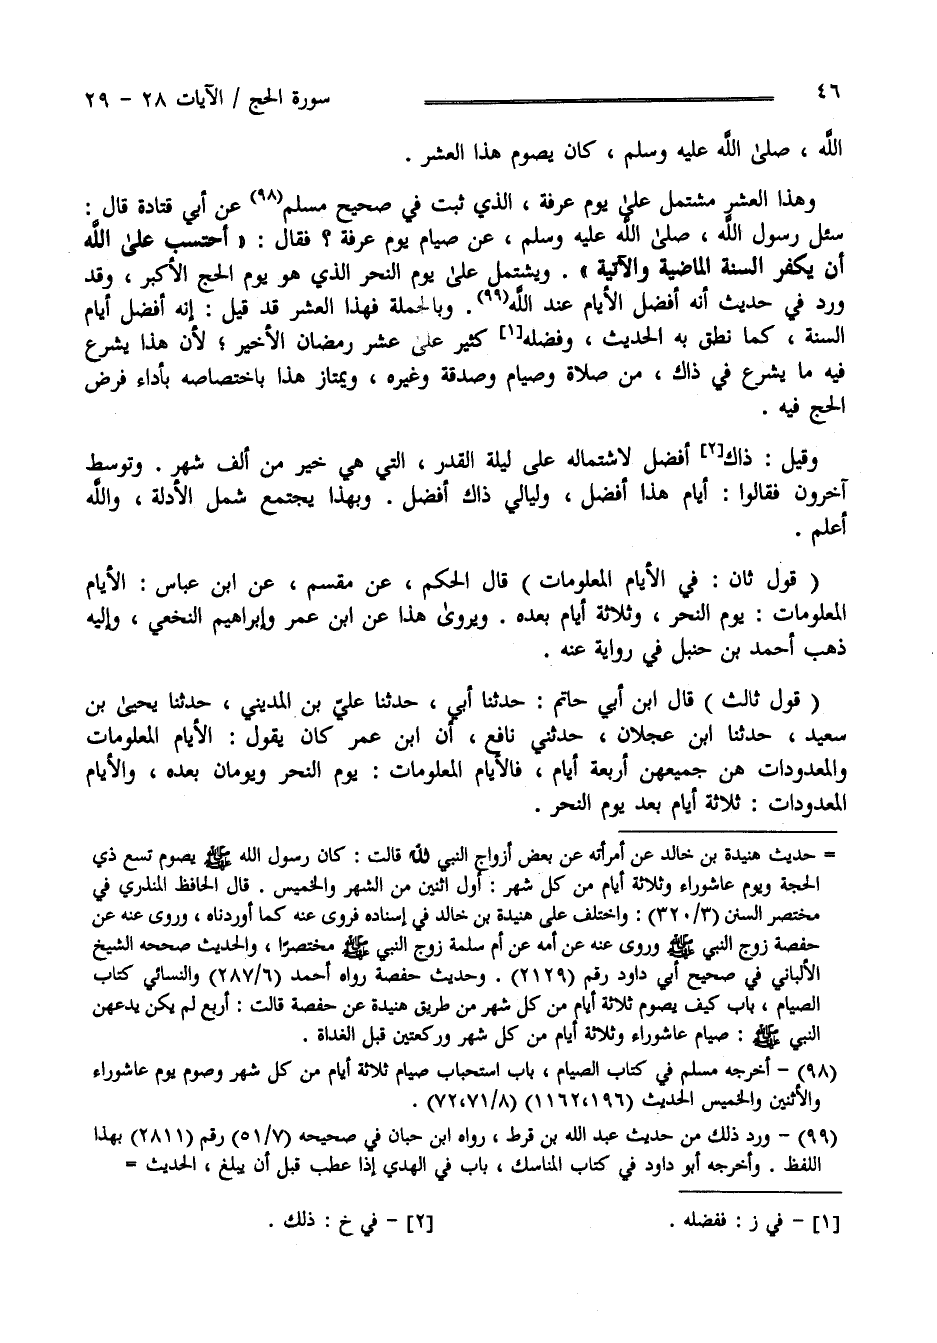 ٤٦ سورة الحج / الآيات ٢٨ - ٢٩
اللَّه ، صلىٰ اللَّه عليه وسلم ، كان يصوم هذا العشر .
وهذا العشر مشتمل علىٰ يوم عرفة ، الذي ثبت في صحيح مسلم(٩٨) عن أبي قتادة قال :
سئل رسول اللَّه ، صلىٰ اللَّه عليه وسلم ، عن صيام يوم عرفة ؟ فقال : « أحتسب علىٰ اللَّه
أن يكفر السنة الماضية والآتية » . ويشتمل علىٰ يوم النحر الذي هو يوم الحج الأكبر ، وقد
ورد في حديث أنه أفضل الأيام عند اللَّه(٩٩) . وبالجملة فهذا العشر قد قيل : إنه أفضل أيام
السنة ، كما نطق به الحديث ، وفضله[١] كثير علىٰ عشر رمضان الأخير ؛ لأن هذا يشرع
فيه ما يشرع في ذاك ، من صلاة وصيام وصدقة وغيره ، ويمتاز هذا باختصاصه بأداء فرض
الحج فيه .
وقيل : ذاك[٢] أفضل لاشتماله على ليلة القدر ، التي هي خير من ألف شهر . وتوسط
آخرون فقالوا : أيام هذا أفضل ، وليالي ذاك أفضل . وبهذا يجتمع شمل الأدلة ، واللَّه
أعلم .
( قول ثان : في الأيام المعلومات ) قال الحكم ، عن مقسم ، عن ابن عباس : الأيام
المعلومات : يوم النحر ، وثلاثة أيام بعده . ويروىٰ هذا عن ابن عمر وإبراهيم النخعي ، وإليه
ذهب أحمد بن حنبل في رواية عنه .
( قول ثالث ) قال ابن أبي حاتم : حدثنا أبي ، حدثنا عليّ بن المديني ، حدثنا يحيىٰ بن
سعيد ، حدثنا ابن عجلان ، حدثني نافع ، أن ابن عمر كان يقول : الأيام المعلومات
والمعدودات هن جميعهن أربعة أيام ، فالأيام المعلومات : يوم النحر ويومان بعده ، والأيام
المعدودات : ثلاثة أيام بعد يوم النحر .
= حديث هنيدة بن خالد عن أمرأته عن بعض أزواج النبي ﷺ قالت : كان رسول الله ﷺ يصوم تسع ذي
الحجة ويوم عاشوراء وثلاثة أيام من كل شهر : أول اثنين من الشهر والخميس . قال الحافظ المنذري في
مختصر السنن (٣٢٠/٣) : واختلف على هنيدة بن خالد في إسناده فروى عنه كما أوردناه ، وروى عنه عن
حفصة زوج النبي ﷺ وروى عنه عن أمه عن أم سلمة زوج النبي ﷺ مختصرًا ، والحديث صححه الشيخ
الألباني في صحيح أبي داود رقم (٢١٢٩) . وحديث حفصة رواه أحمد (٢٨٧/٦) والنسائي كتاب
الصيام ، باب كيف يصوم ثلاثة أيام من كل شهر من طريق هنيدة عن حفصة قالت : أربع لم يكن يدعهن
النبي ﷺ : صيام عاشوراء وثلاثة أيام من كل شهر وركعتين قبل الغداة .
(٩٨) - أخرجه مسلم في كتاب الصيام ، باب استحباب صيام ثلاثة أيام من كل شهر وصوم يوم عاشوراء
والأثنين والخميس الحديث (١١٦٢،١٩٦) (٧٢،٧١/٨) .
(٩٩) - ورد ذلك من حديث عبد الله بن قرط ، رواه ابن حبان في صحيحه (٥١/٧) رقم (٢٨١١) بهذا
اللفظ . وأخرجه أبو داود في كتاب المناسك ، باب في الهدي إذا عطب قبل أن يبلغ ، الحديث =
[١] - في ز : ففضله . [٢] - في خ : ذلك .